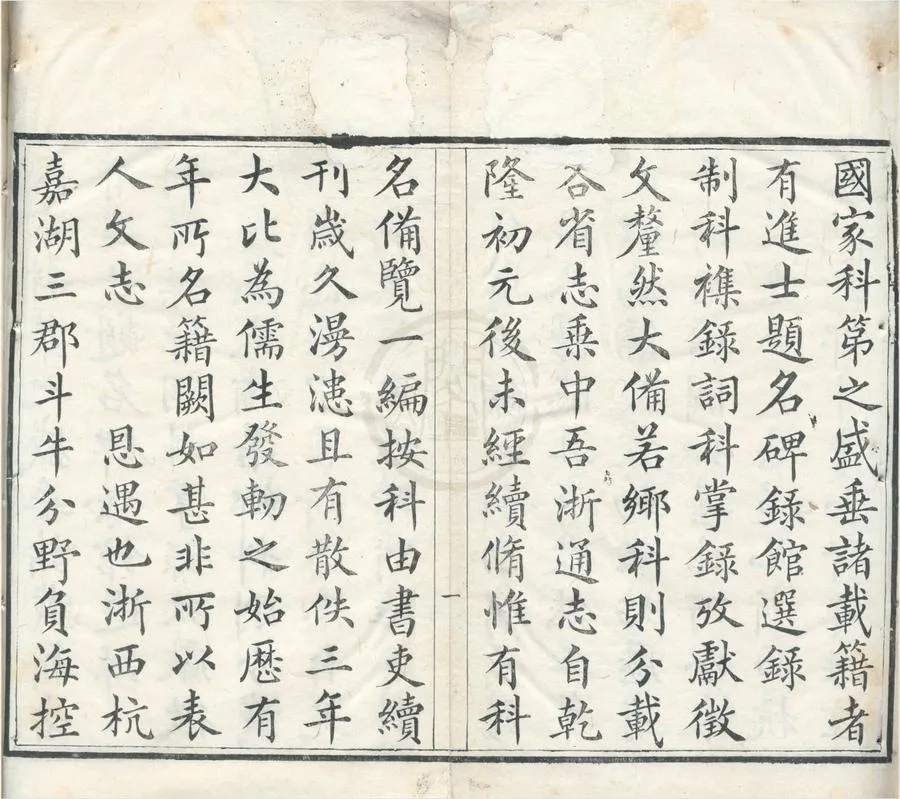 國家科第之盛垂諸載籍者
有進士題名碑錄館選錄
制科襍錄詞科掌錄攷獻徵
文釐然大備若鄉科則分載
各省志乗中吾浙通志自乾
隆初元後未經續脩惟有科
一
名備覽一編按科由書吏續
刊嵗久漫漶且有散佚三年
大比為儒生發軔之始歷有
年所名籍闕如甚非所以表
人文志 恩遇也浙西杭
嘉湖三郡斗牛分野負海控